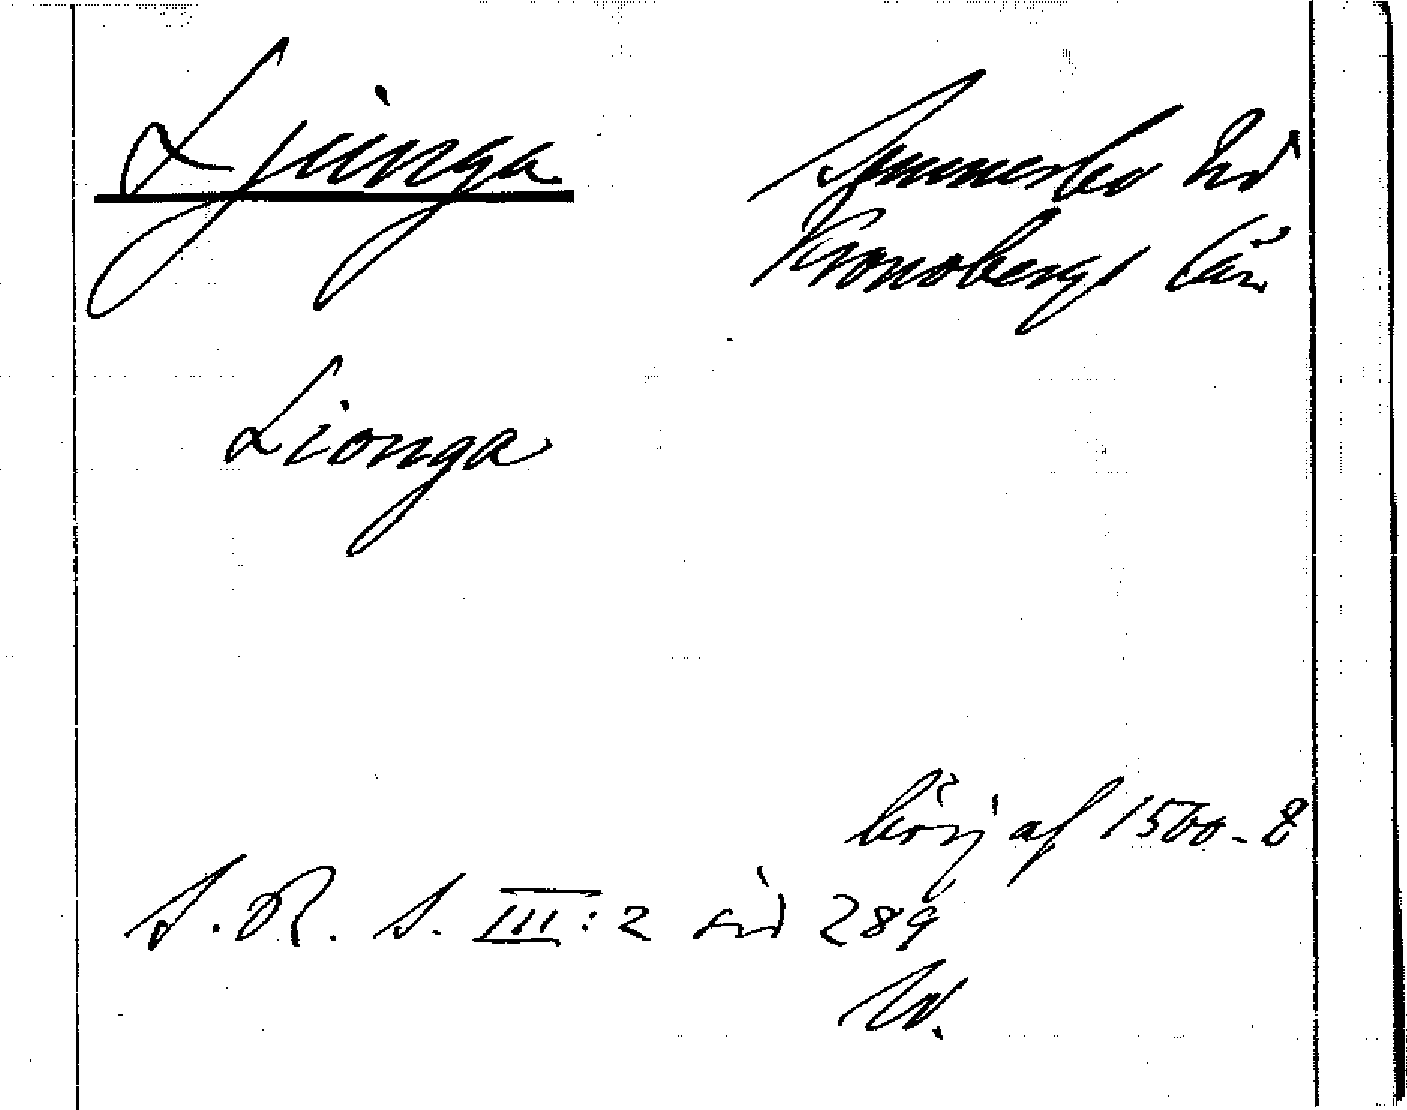 Ljunga
Sunnerbo hd
Kronobergs län
Lionga
börj af 1500-t
S. R. S. III:2 sid 289